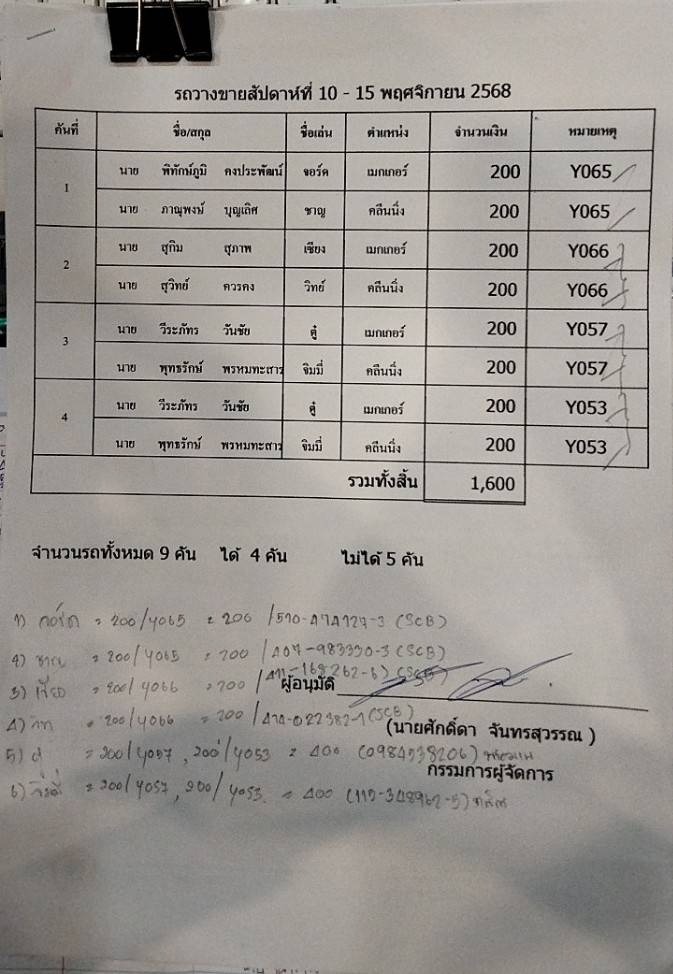 รถวางขายสัปดาห์ที่ 10 - 15 พฤศจิกายน 2568
คันที่ ชื่อ/สกุล ชื่อเล่น ตำแหน่ง จำนวนเงิน หมายเหตุ
1 นาย พิทักษ์ภูมิ คงประพัฒน์ จอร์ค เมกเกอร์ 200 Y065
นาย ภาณุพงษ์ บุญเลิศ ชาญ คลีนนิ่ง 200 Y065
2 นาย สุกิม สุภาพ เชียง เมกเกอร์ 200 Y066
นาย สุวิทย์ ควรคง วิทย์ คลีนนิ่ง 200 Y066
3 นาย วีระภัทร วันชัย ตู๋ เมกเกอร์ 200 Y057
นาย พุทธรักษ์ พรหมทะสาร จิมมี่ คลีนนิ่ง 200 Y057
4 นาย วีระภัทร วันชัย ตู๋ เมกเกอร์ 200 Y053
นาย พุทธรักษ์ พรหมทะสาร จิมมี่ คลีนนิ่ง 200 Y053
รวมทั้งสิ้น 1,600
จำนวนรถทั้งหมด 9 คัน ได้ 4 คัน ไม่ได้ 5 คัน
= 200/Y065 = 200 (SCB)
= 200/Y065 = 200 (SCB)
3) = 200/Y066 = 200 (SCB)
ผู้อนุมัติ
= 200/Y066 = 200 (SCB)
(นายศักดิ์ดา จันทรสุวรรณ )
5) ตู๋ = 200/Y057, 200/Y053 = 400
กรรมการผู้จัดการ
6) = 200/Y057, 200/Y053 = 400